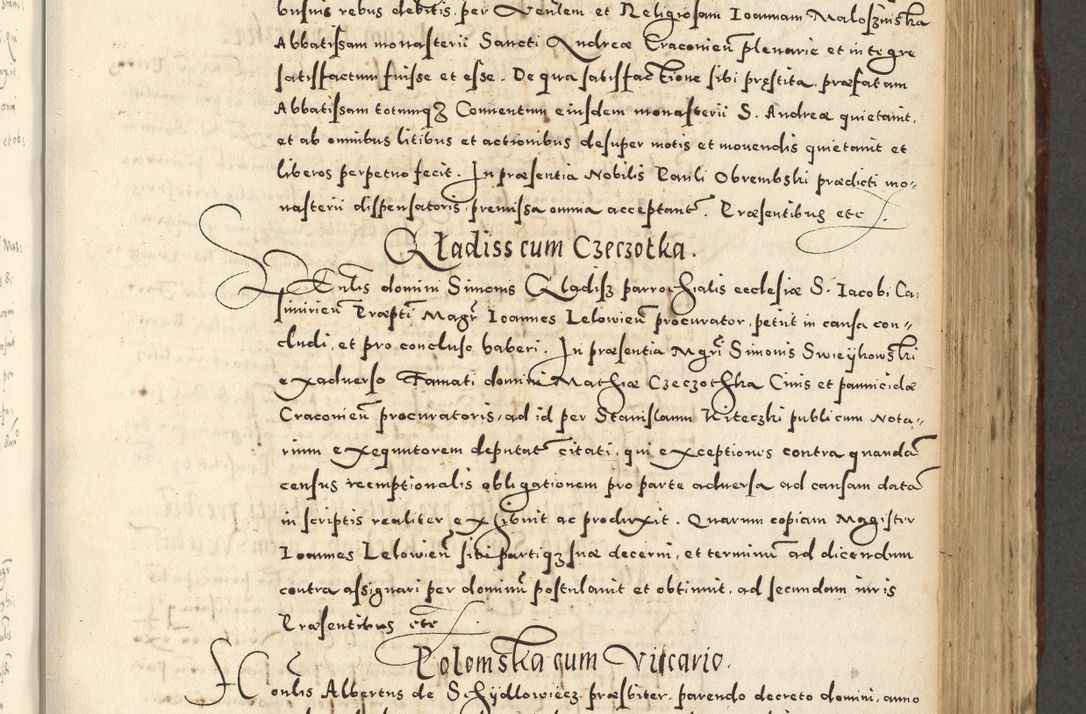 busuis rebus debitis per Venlem et Religiosam Ioannam Maloszinska
Abbatissam monasterii Sancti Andreæ Craconień plenarie et integre
satisfactum fuisse et esse. De qua satisfactione sibi pręstita, præfatam
Abbatissam totumqȝ Conventum eiusdem monasterii S. Andreæ quietavit,
et ab omnibus litibus et actionibus desuper motis et movendis quietavit et
liberos perpetuo fecit. In præsentia Nobilis Pauli Obrembski prædicti mo-
nasterii dispensatoris, premissa omnia acceptant. Præsentibus etc.
Gładiss cum Czeczotka.
Venlis domini Simonis Gladisz parrochialis ecclesiæ S. Iacobi Ca-
simirień Præpti Magr Ioannes Lelowień procurator, petiit in causa con-
cludi, et pro concluso haberi. In præsentia Mgri Simonis Swieykowski
exadverso Famati domini Mathiæ Czeczothka Civis et pannicidæ
Craconień procuratoris, ad id per Stanislaum Kiteczki publicum Nota-
rium exequutorem deputat citati, qui exceptiones contra quandā
census reemptionalis obligationem pro parte adversa ad causam datā
in scriptis realiter exhibuit ac produxit. Quarum copiam Magister
Ioannes Lelowień sibi partiqȝ suæ decerni, et terminum ad dicendum
contra assignari per dominū postulavit et obtinuit, ad secundam iuris
Præsentibus etc
Polomska cum Vicario.
Honlis Albertus de Schydlowiecz præsbiter, parendo decreto domini, anno